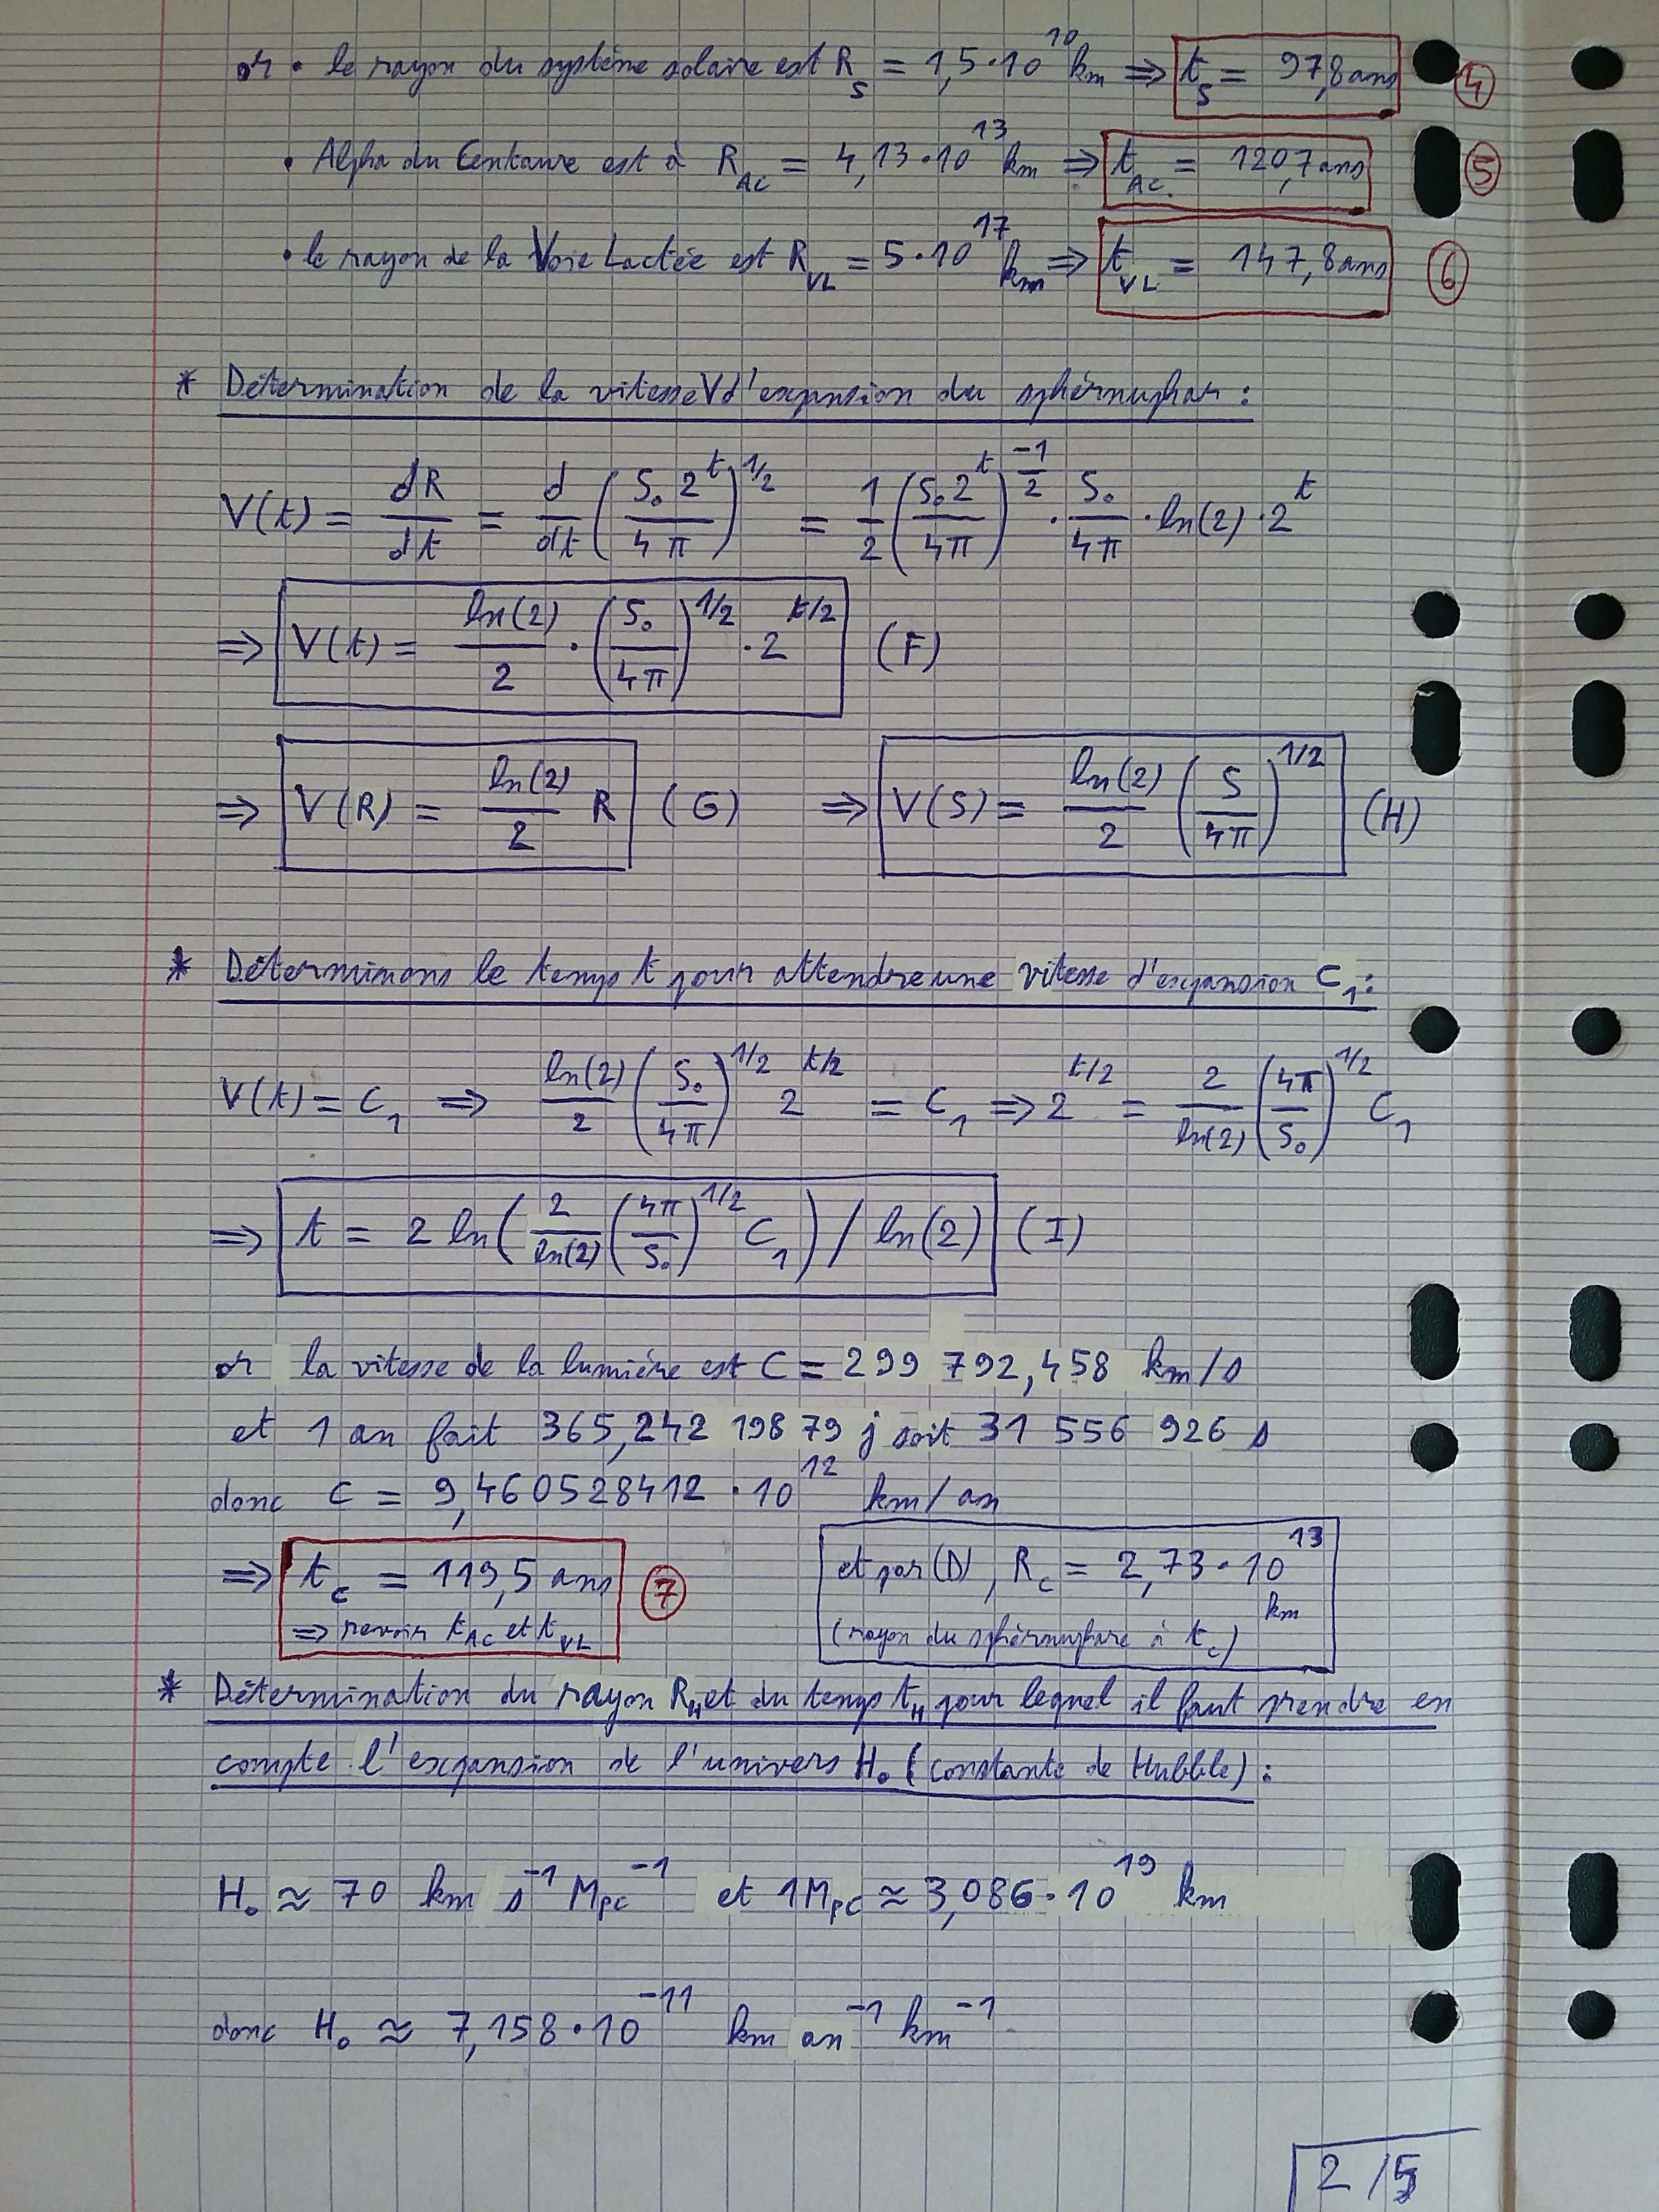 or • le rayon du système solaire est R_S = 1,5·10^10 km ⇒ t_S = 97,8 ans ④
• Alpha du Centaure est à R_AC = 4,13·10^13 km ⇒ t_AC = 120,7 ans ⑤
• le rayon de la Voie Lactée est R_VL = 5·10^17 km ⇒ t_VL = 147,8 ans ⑥
* Détermination de la vitesse V d'expansion du sphérnuphar :
V(t) = dR/dt = d/dt (S₀ 2^t / 4π)^1/2 = 1/2 (S₀ 2^t / 4π)^(-1/2) · S₀/4π · ln(2) · 2^t
⇒ V(t) = ln(2)/2 · (S₀/4π)^1/2 · 2^t/2 (F)
⇒ V(R) = ln(2)/2 R (G) ⇒ V(S) = ln(2)/2 (S/4π)^1/2 (H)
* Déterminons le temps t pour attendre une vitesse d'expansion C₁ :
V(t) = C₁ ⇒ ln(2)/2 (S₀/4π)^1/2 2^t/2 = C₁ ⇒ 2^t/2 = 2/ln(2) (4π/S₀)^1/2 C₁
⇒ t = 2 ln(2/ln(2) (4π/S₀)^1/2 C₁) / ln(2) (I)
or la vitesse de la lumière est C = 299 792,458 km/s
et 1 an fait 365,242 198 79 j soit 31 556 926 s
donc C = 9,460528412·10^12 km/an
⇒ t_c = 119,5 ans ⑦
⇒ revoir t_AC et t_VL
et par (D), R_c = 2,73·10^13 km
(rayon du sphérnuphare à t_c)
* Détermination du rayon R_H et du temps t_H pour lequel il faut prendre en
compte l'expansion de l'univers H₀ (constante de Hubble) :
H₀ ≈ 70 km s^-1 Mpc^-1 et 1Mpc ≈ 3,086·10^19 km
donc H₀ ≈ 7,158·10^-11 km an^-1 km^-1
2/5